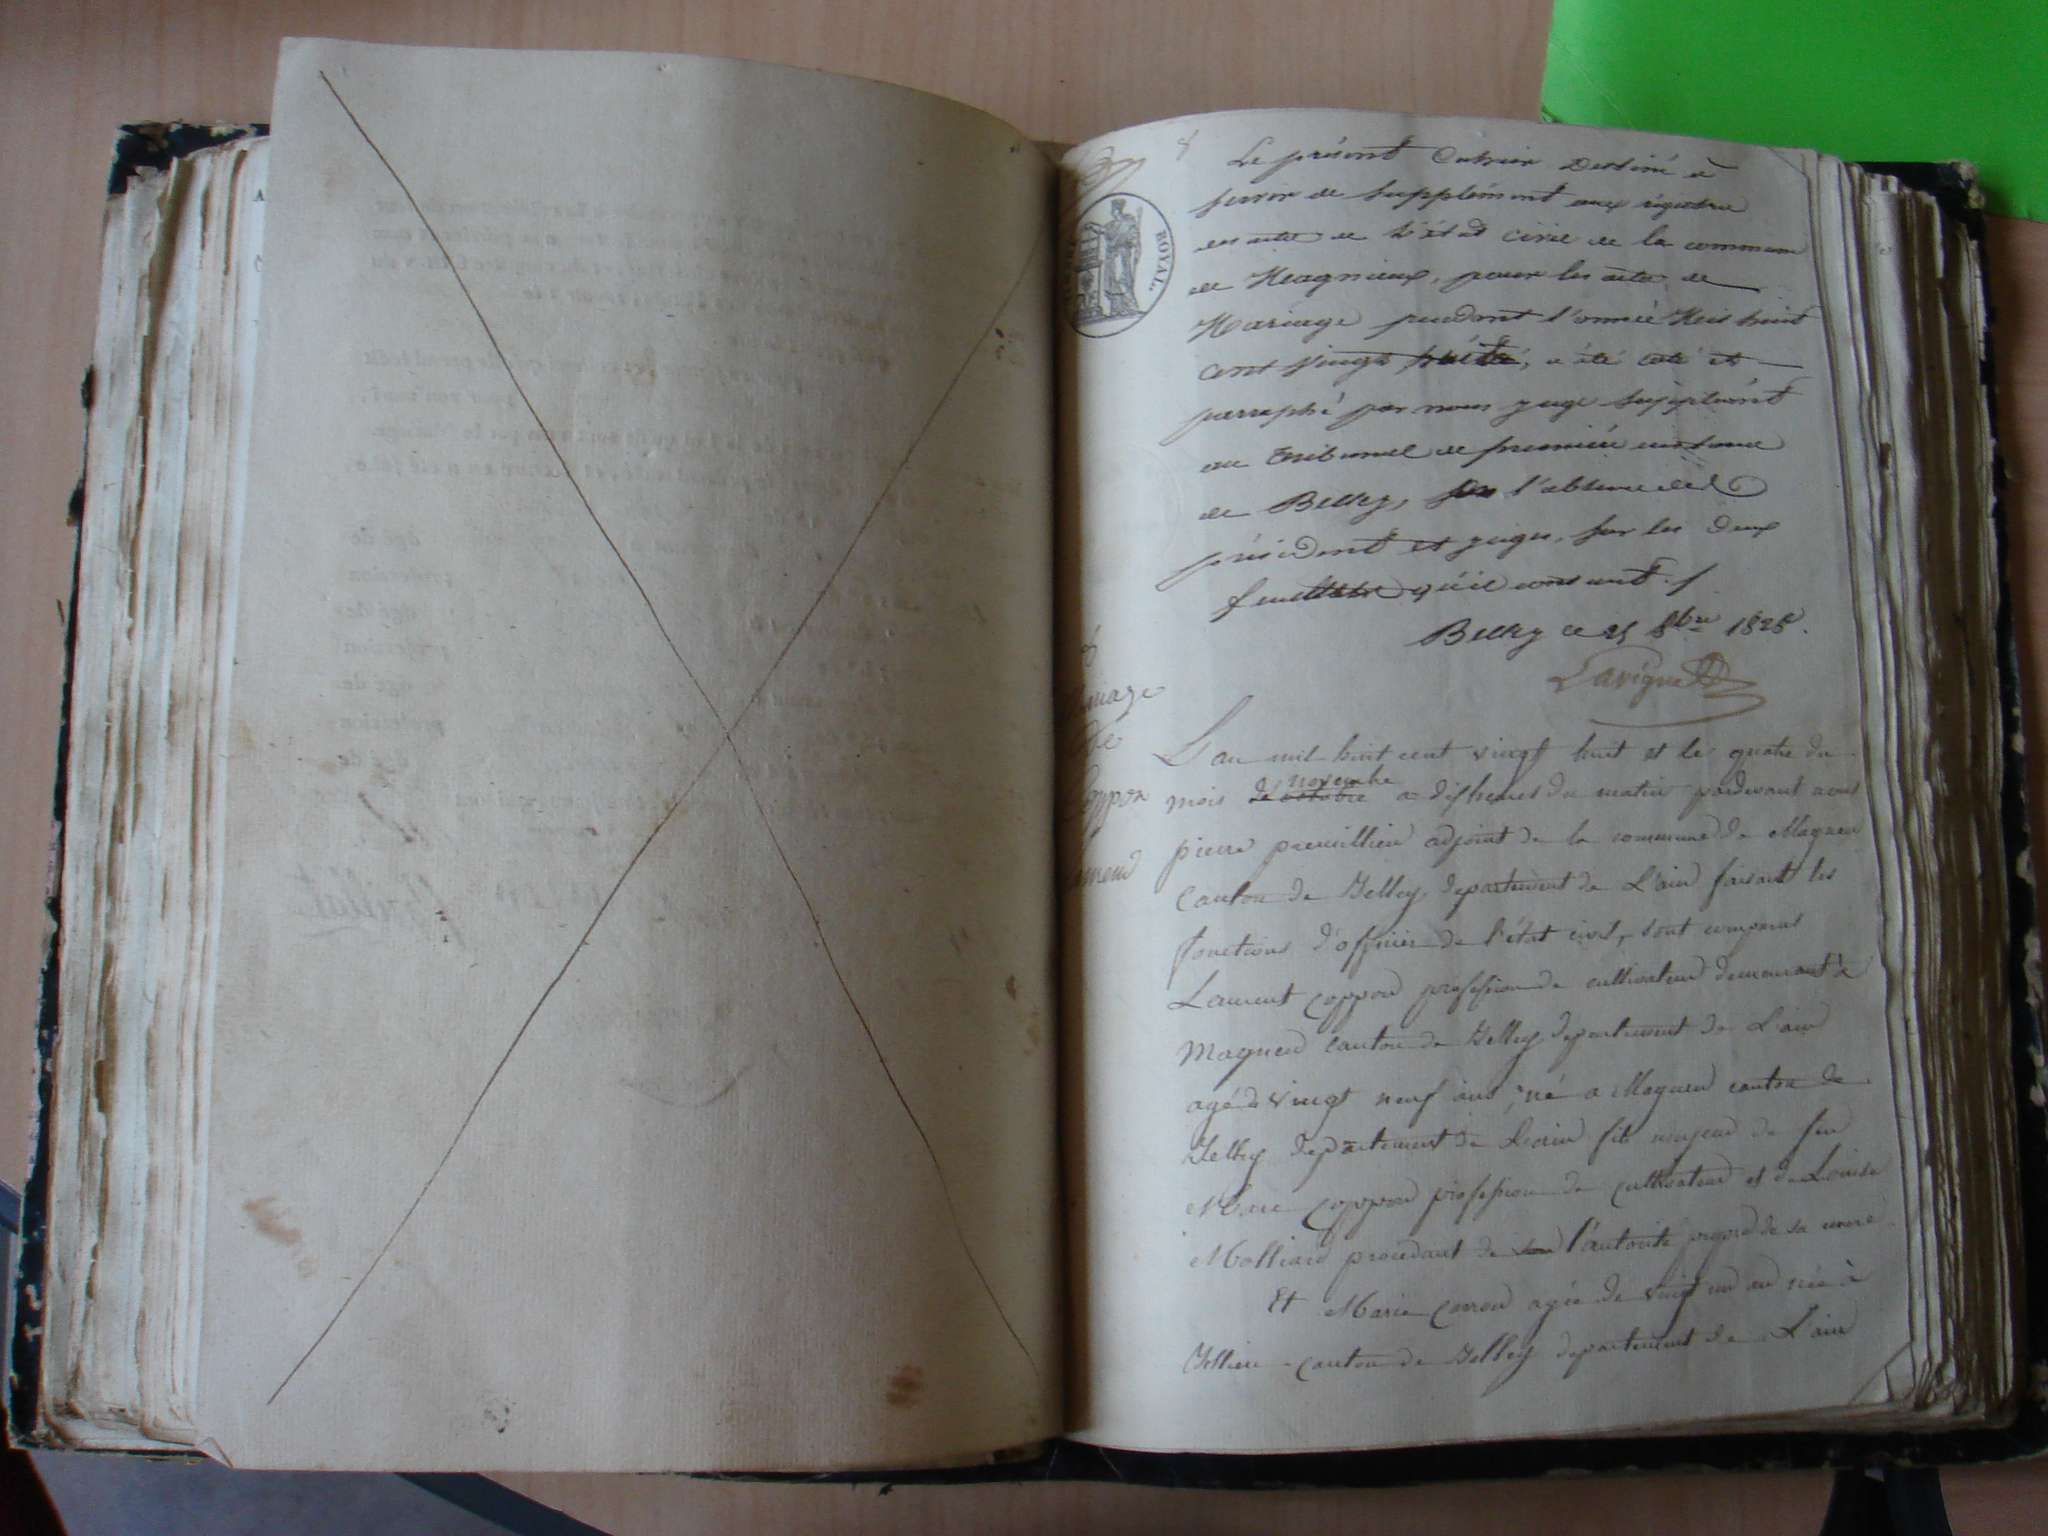 ROYAL.
Le présent Cahier Destiné à
servir de supplément aux registres
des actes de l'état civil de la commune
de Magnieux, pour les actes de
Mariage pendant l'année Mil huit
cent vingt huit, a été coté et
parraphé par nous juge suppléant
au Tribunal de première instance
de Belley, l'absence des
président et juges, sur les deux
feuillets qu'il contient
Belley ce 8bre 1828.
Lavigne
Mariage
de
Coppon
L'an mil huit cent vingt huit et le quatre du
novembre
mois de octobre a dix heures du matin pardevant nous
pierre adjoint de la commune de Magneu
canton de Belley departement de L'ain faisant les
fonctions d'officier de l'état civil, sont comparus
Laurent Coppon profession de cultivateur demeurant à
Magneu canton de Belley departement de L'ain
agé de vingt neuf ans, né a Magneu canton de
Belley departement de L'ain fils majeur de feu
Marc Coppon profession de cultivateur et de Louise
Molliard procedant de son l'autorité de sa mere
Et Marie agée de vingt un an née à
canton de Belley departement de L'ain